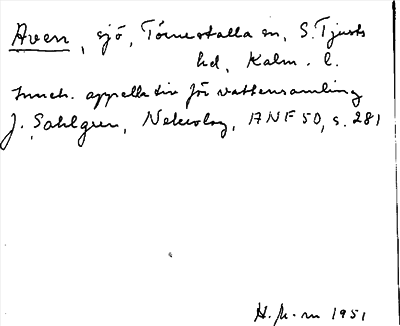 Aven, sjö, Törnesfalla sn, S. Tjusts
hd, Kalm. l.
Inneh. appellativ för vattensamling
J. Sahlgren, Nekrolog, ANF 50, s. 281
H. 1951